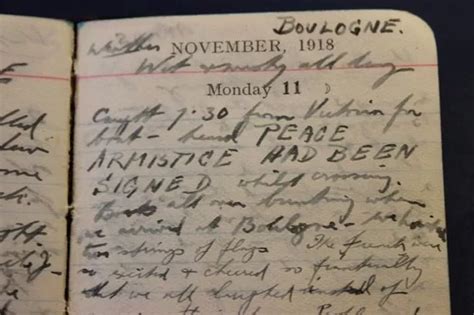 BOULOGNE.
NOVEMBER, 1918
Wet & misty all day
Monday 11
Caught 7.30 from Victoria for
boat - heard PEACE
ARMISTICE HAD BEEN
SIGNED whilst crossing
Boats all over bunting when
we arrived at Boulogne -
two strings of flags The French were
so excited & cheered so frantically
that we all laughed instead of